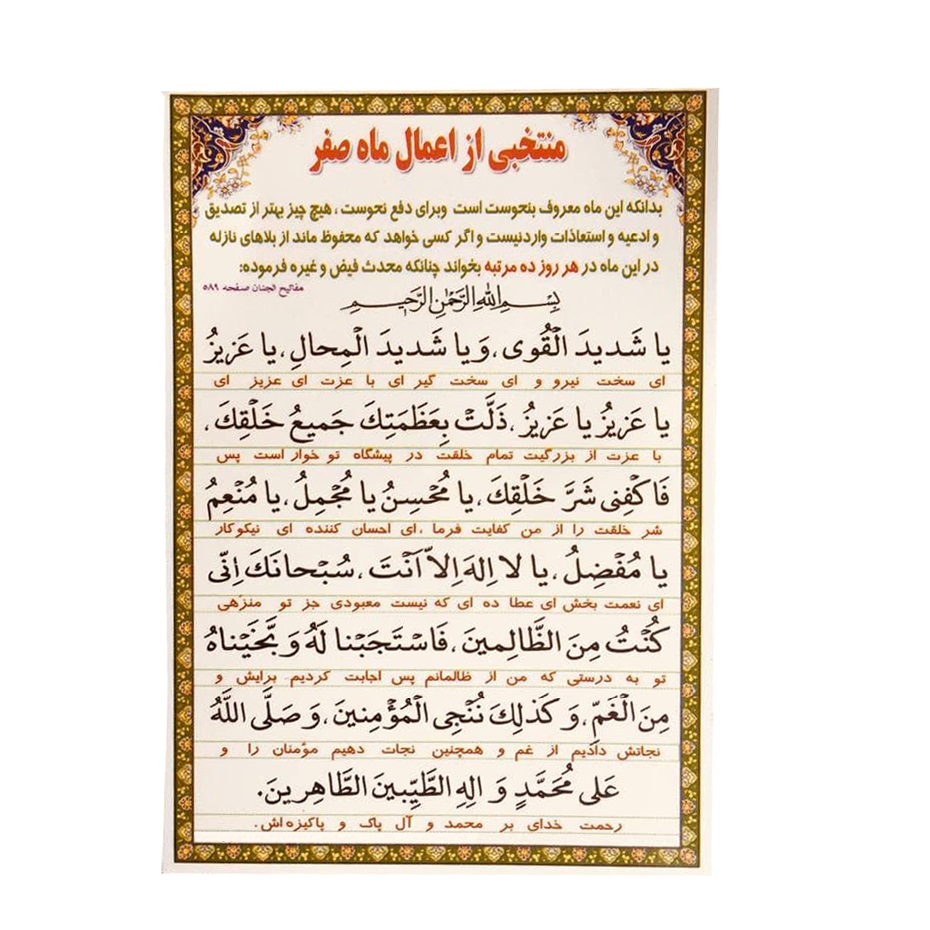 منتخبی از اعمال ماه صفر
بدانکه این ماه معروف بنحوست است وبرای دفع نحوست ، هیچ چیز بهتر از تصدیق
و ادعیه و استعاذات واردنیست و اگر کسی خواهد که محفوظ ماند از بلاهای نازله
در این ماه در هر روز ده مرتبه بخواند چنانکه محدث فیض و غیره فرموده:
مفاتیح الجنان صفحه ۵۸۹
بِسْمِ اللهِ الرَّحْمٰنِ الرَّحیمِ
یا شَدیدَ الْقُوی ، وَ یا شَدیدَ الْمِحالِ ، یا عَزیزُ
ای سخت نیرو و ای سخت گیر ای با عزت ای عزیز ای
یا عَزیزُ یا عَزیزُ ، ذَلَّتْ بِعَظَمَتِكَ جَمیعُ خَلْقِكَ ،
با عزت از بزرگیت تمام خلقت در پیشگاه تو خوار است پس
فَاكْفِنی شَرَّ خَلْقِكَ ، یا مُحْسِنُ یا مُجْمِلُ ، یا مُنْعِمُ
شر خلقت را از من کفایت فرما ، ای احسان کننده ای نیکوکار
یا مُفْضِلُ ، یا لا اِلهَ اِلاّ اَنْتَ ، سُبْحانَكَ اِنّی
ای نعمت بخش ای عطا ده ای که نیست معبودی جز تو منزّهی
كُنْتُ مِنَ الظَّالِمینَ ، فَاسْتَجَبْنا لَهُ وَ نَجَّیْناهُ
تو به درستی که من از ظالمانم پس اجابت کردیم برایش و
مِنَ الْغَمِّ ، وَ كَذلِكَ نُنْجِی الْمُؤْمِنینَ ، وَ صَلَّی اللَّهُ
نجاتش دادیم از غم و همچنین نجات دهیم مؤمنان را و
عَلی مُحَمَّدٍ وَ الِهِ الطَّیِّبینَ الطَّاهِرینَ .
رحمت خدای بر محمد و آل پاک و پاکیزه اش .